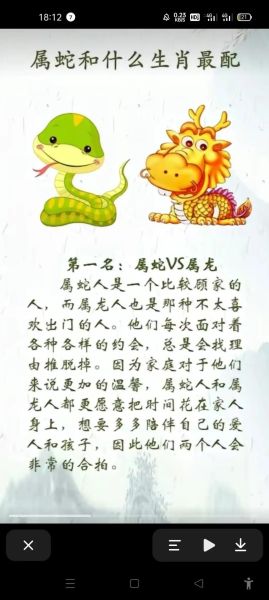 18:12
0.23
KB/S
HD
4G
4G
21
属蛇和什么生肖最配
第一名：属蛇VS属龙
属蛇人是一个比较顾家的
人，而属龙人也是那种不太喜
欢出门的人。他们每次面对着
各种各样的约会，总是会找理
由推脱掉。因为家庭对于他们
来说更加的温馨，属蛇人和属
龙人都更愿意把时间花在家人
身上，想要多多陪伴自己的爱
人和孩子，因此他们两个人会
非常的合拍。